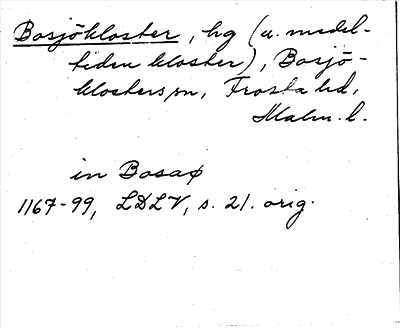 Bosjökloster, hg (u. medel-
tiden kloster), Bosjö-
klosters sn, Frosta hd,
Malm. l.
in Bosaø
1167-99, LDLV, s. 21. orig.